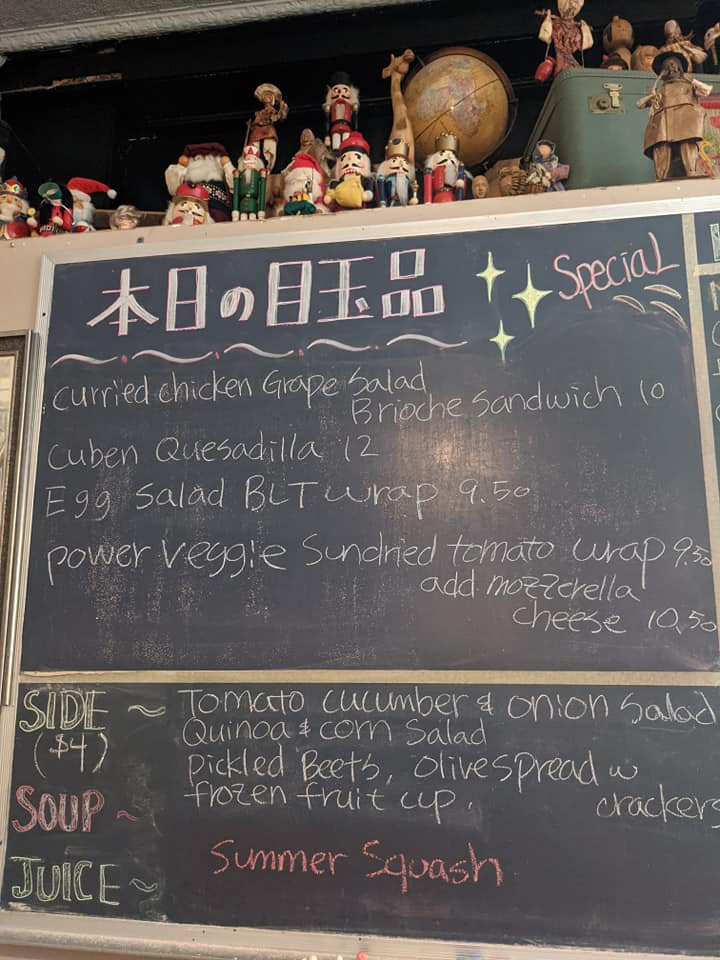 本日の目玉品 Special
curried chicken Grape Salad
Brioche Sandwich 10
cuben Quesadilla 12
Egg Salad BLT wrap 9.50
power veggie Sundried tomato wrap 9.50
add mozzerella
cheese 10.50
SIDE ~ Tomato cucumber & onion Salad
($4) Quinoa & corn Salad
pickled Beets, olive spread w
crackers
frozen fruit cup.
SOUP ~
Summer Squash
JUICE ~